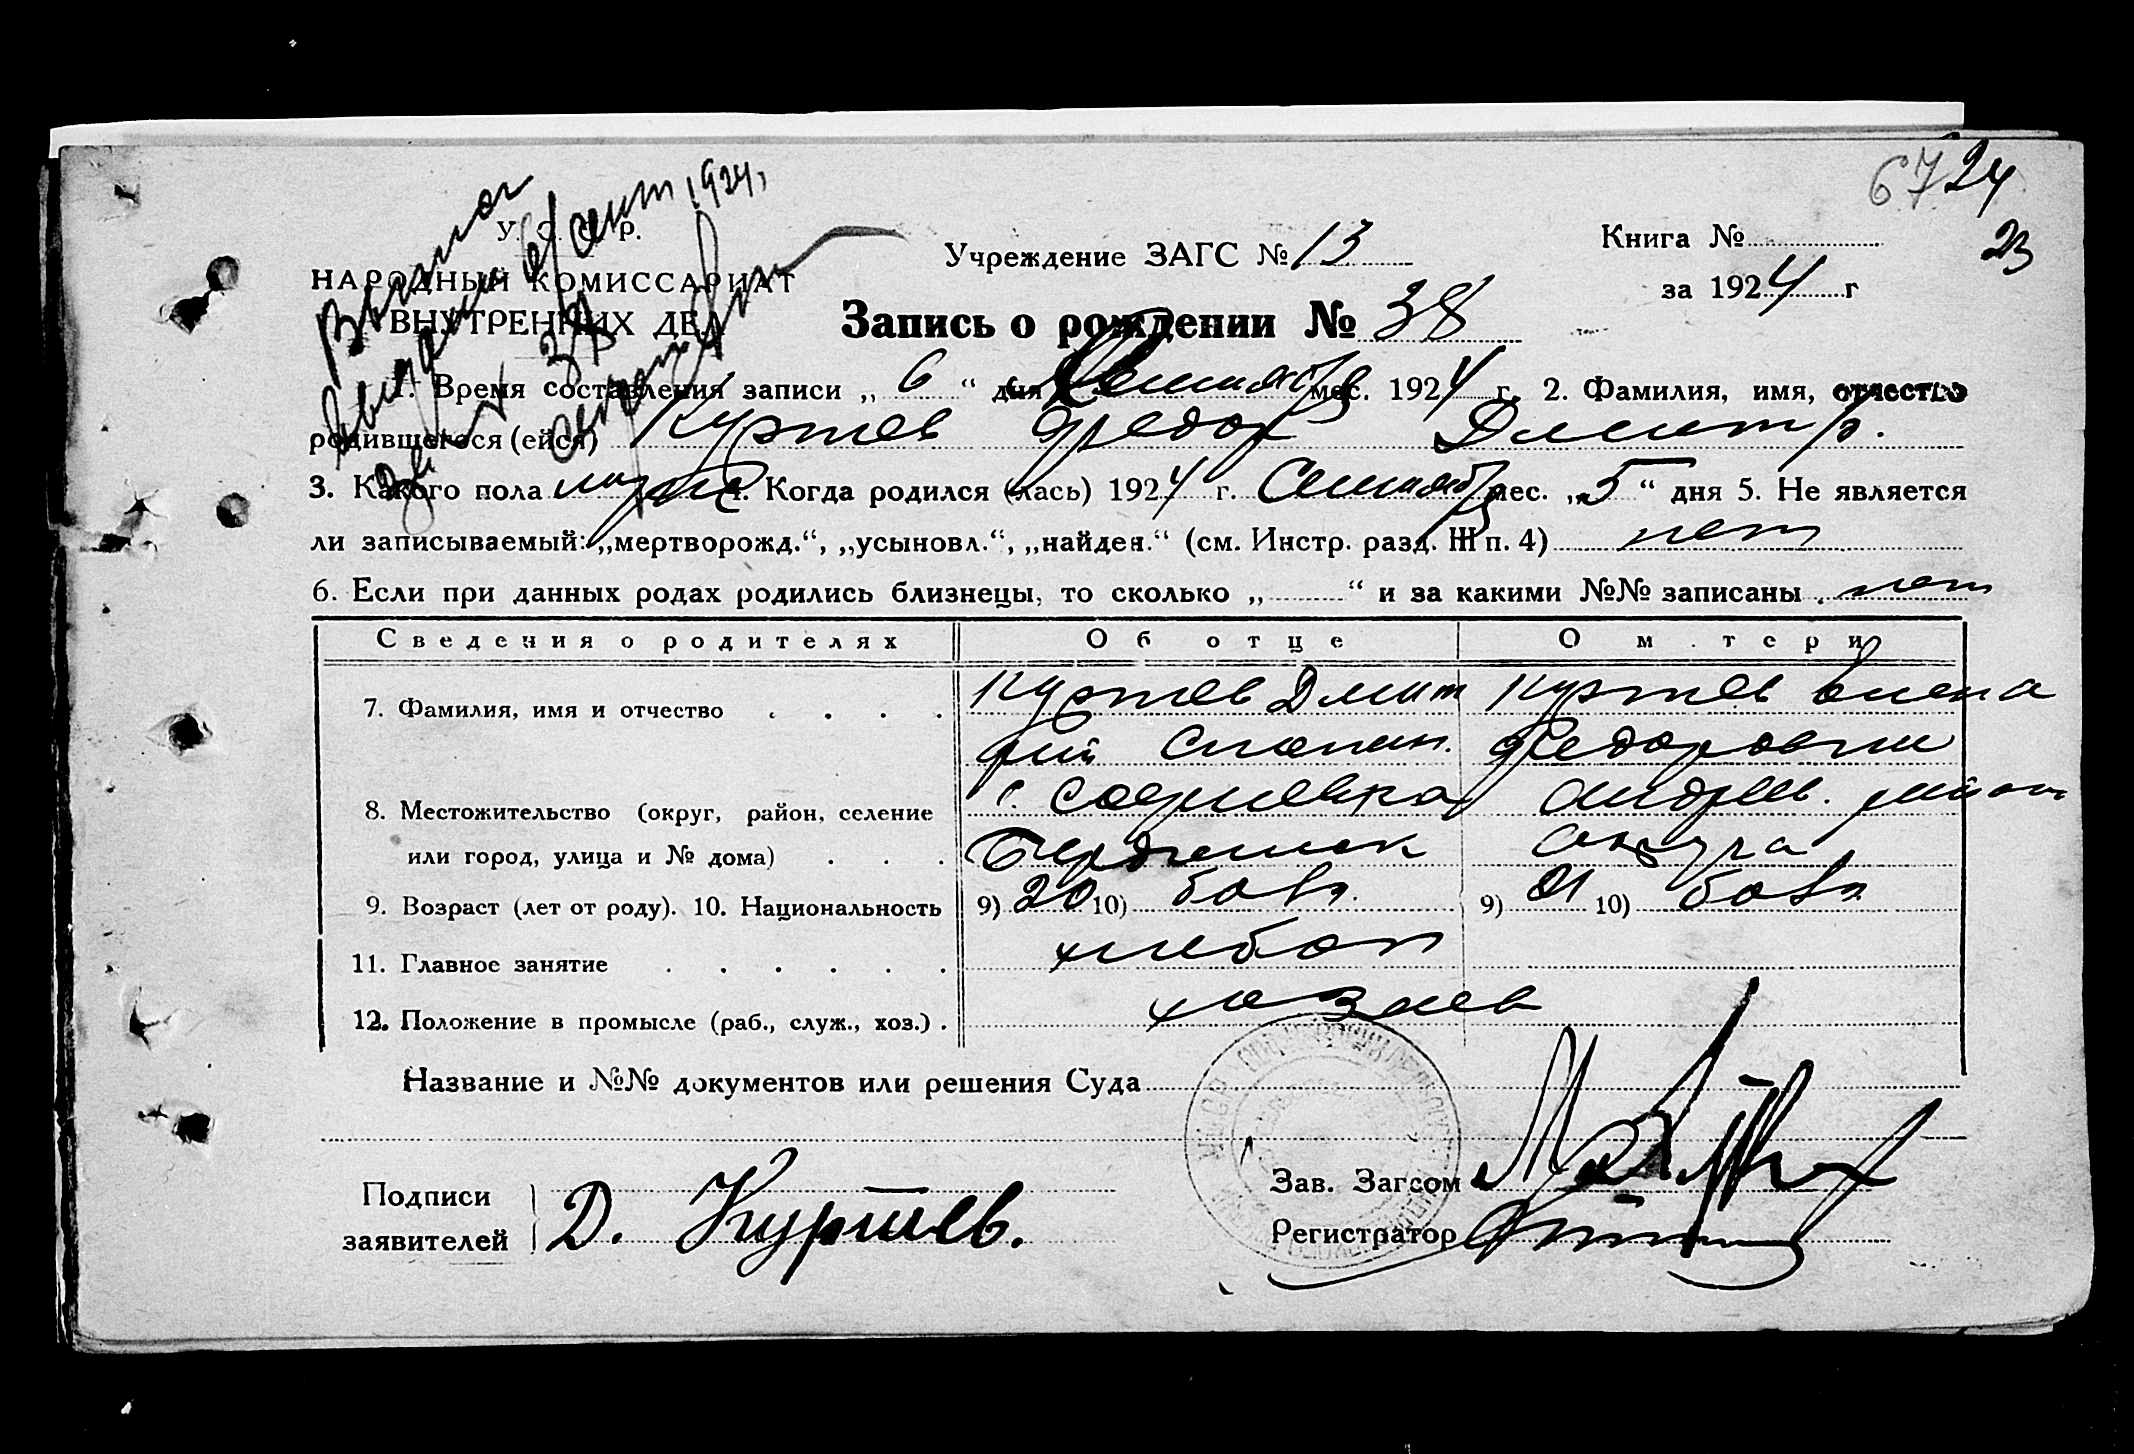 67 24
23
У. С. С. Р.
НАРОДНЫЙ КОМИССАРИАТ
ВНУТРЕННИХ ДЕЛ
6/сент 1924,
Учреждение ЗАГС № 13
Книга №
за 1924 г
Запись о рождении № 38
1. Время составления записи „ 6 “ дня Сентября мес. 1924 г. 2. Фамилия, имя, отчество
родившегося (ейся) Куртев Федор Дмитр.
3. Какого пола муж 4. Когда родился (лась) 1924 г. Сентябр мес. „ 5 “ дня 5. Не является
ли записываемый: „мертворожд.“, „усыновл.“, „найден.“ (см. Инстр. разд. III п. 4) нет
6. Если при данных родах родились близнецы, то сколько „ “ и за какими №№ записаны . нет
Сведения о родителях Об отце О м.тери
7. Фамилия, имя и отчество . . . . Куртев Дмит Куртев Елена
рий Степан. Федоровна
8. Местожительство (округ, район, селение с. Андрев. район
или город, улица и № дома) . . . Бердянск округа
9. Возраст (лет от роду). 10. Национальность 9) 20 10) болг. 9) 21 10) болг.
11. Главное занятие . . . . . . хлебоп
12. Положение в промысле (раб., служ., хоз.) . хозяев
Название и №№ документов или решения Суда
Подписи
заявителей Д. Куртев.
Зав. Загсом
Регистратор